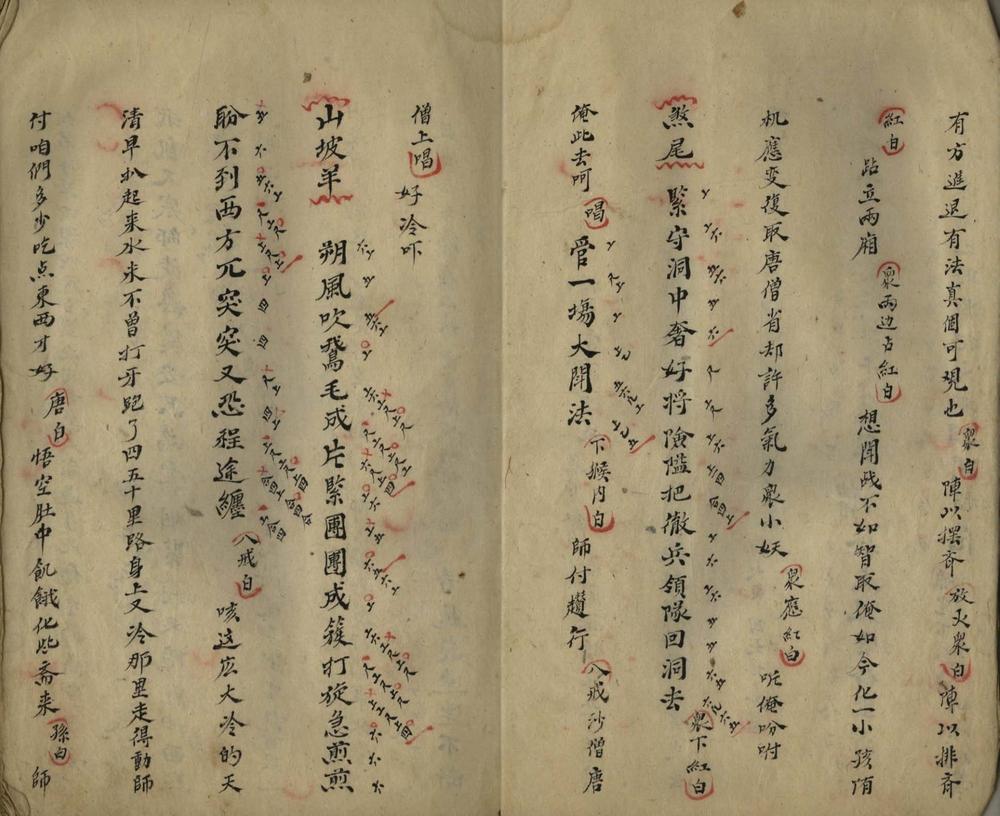 有方進退有法真個可观也衆白陣以摆齐放火衆白陣以排斉
紅白
跕立兩廂衆兩边占紅白想開战不如智取俺如今化一小孩頂
机應变復取唐僧省却許多氣力衆小妖衆應紅白吒俺吩咐
煞尾緊守洞中奢好將險隘把徹兵領隊回洞去衆下紅白
俺此去呵唱管一塲大開法下猴内白師付趱行八戒沙僧唐
僧上唱好冷吓
山坡羊朔風吹鵞毛成片緊團團成簇打旋急煎煎
盼不到西方兀突突又恐程途纏八戒白咳这庅大冷的天
清早扒起来水米不曾打牙跑了四五十里路身上又冷那里走得動師
付咱們多少吃点東西才好唐白悟空肚中飢餓化些斋来孫白師